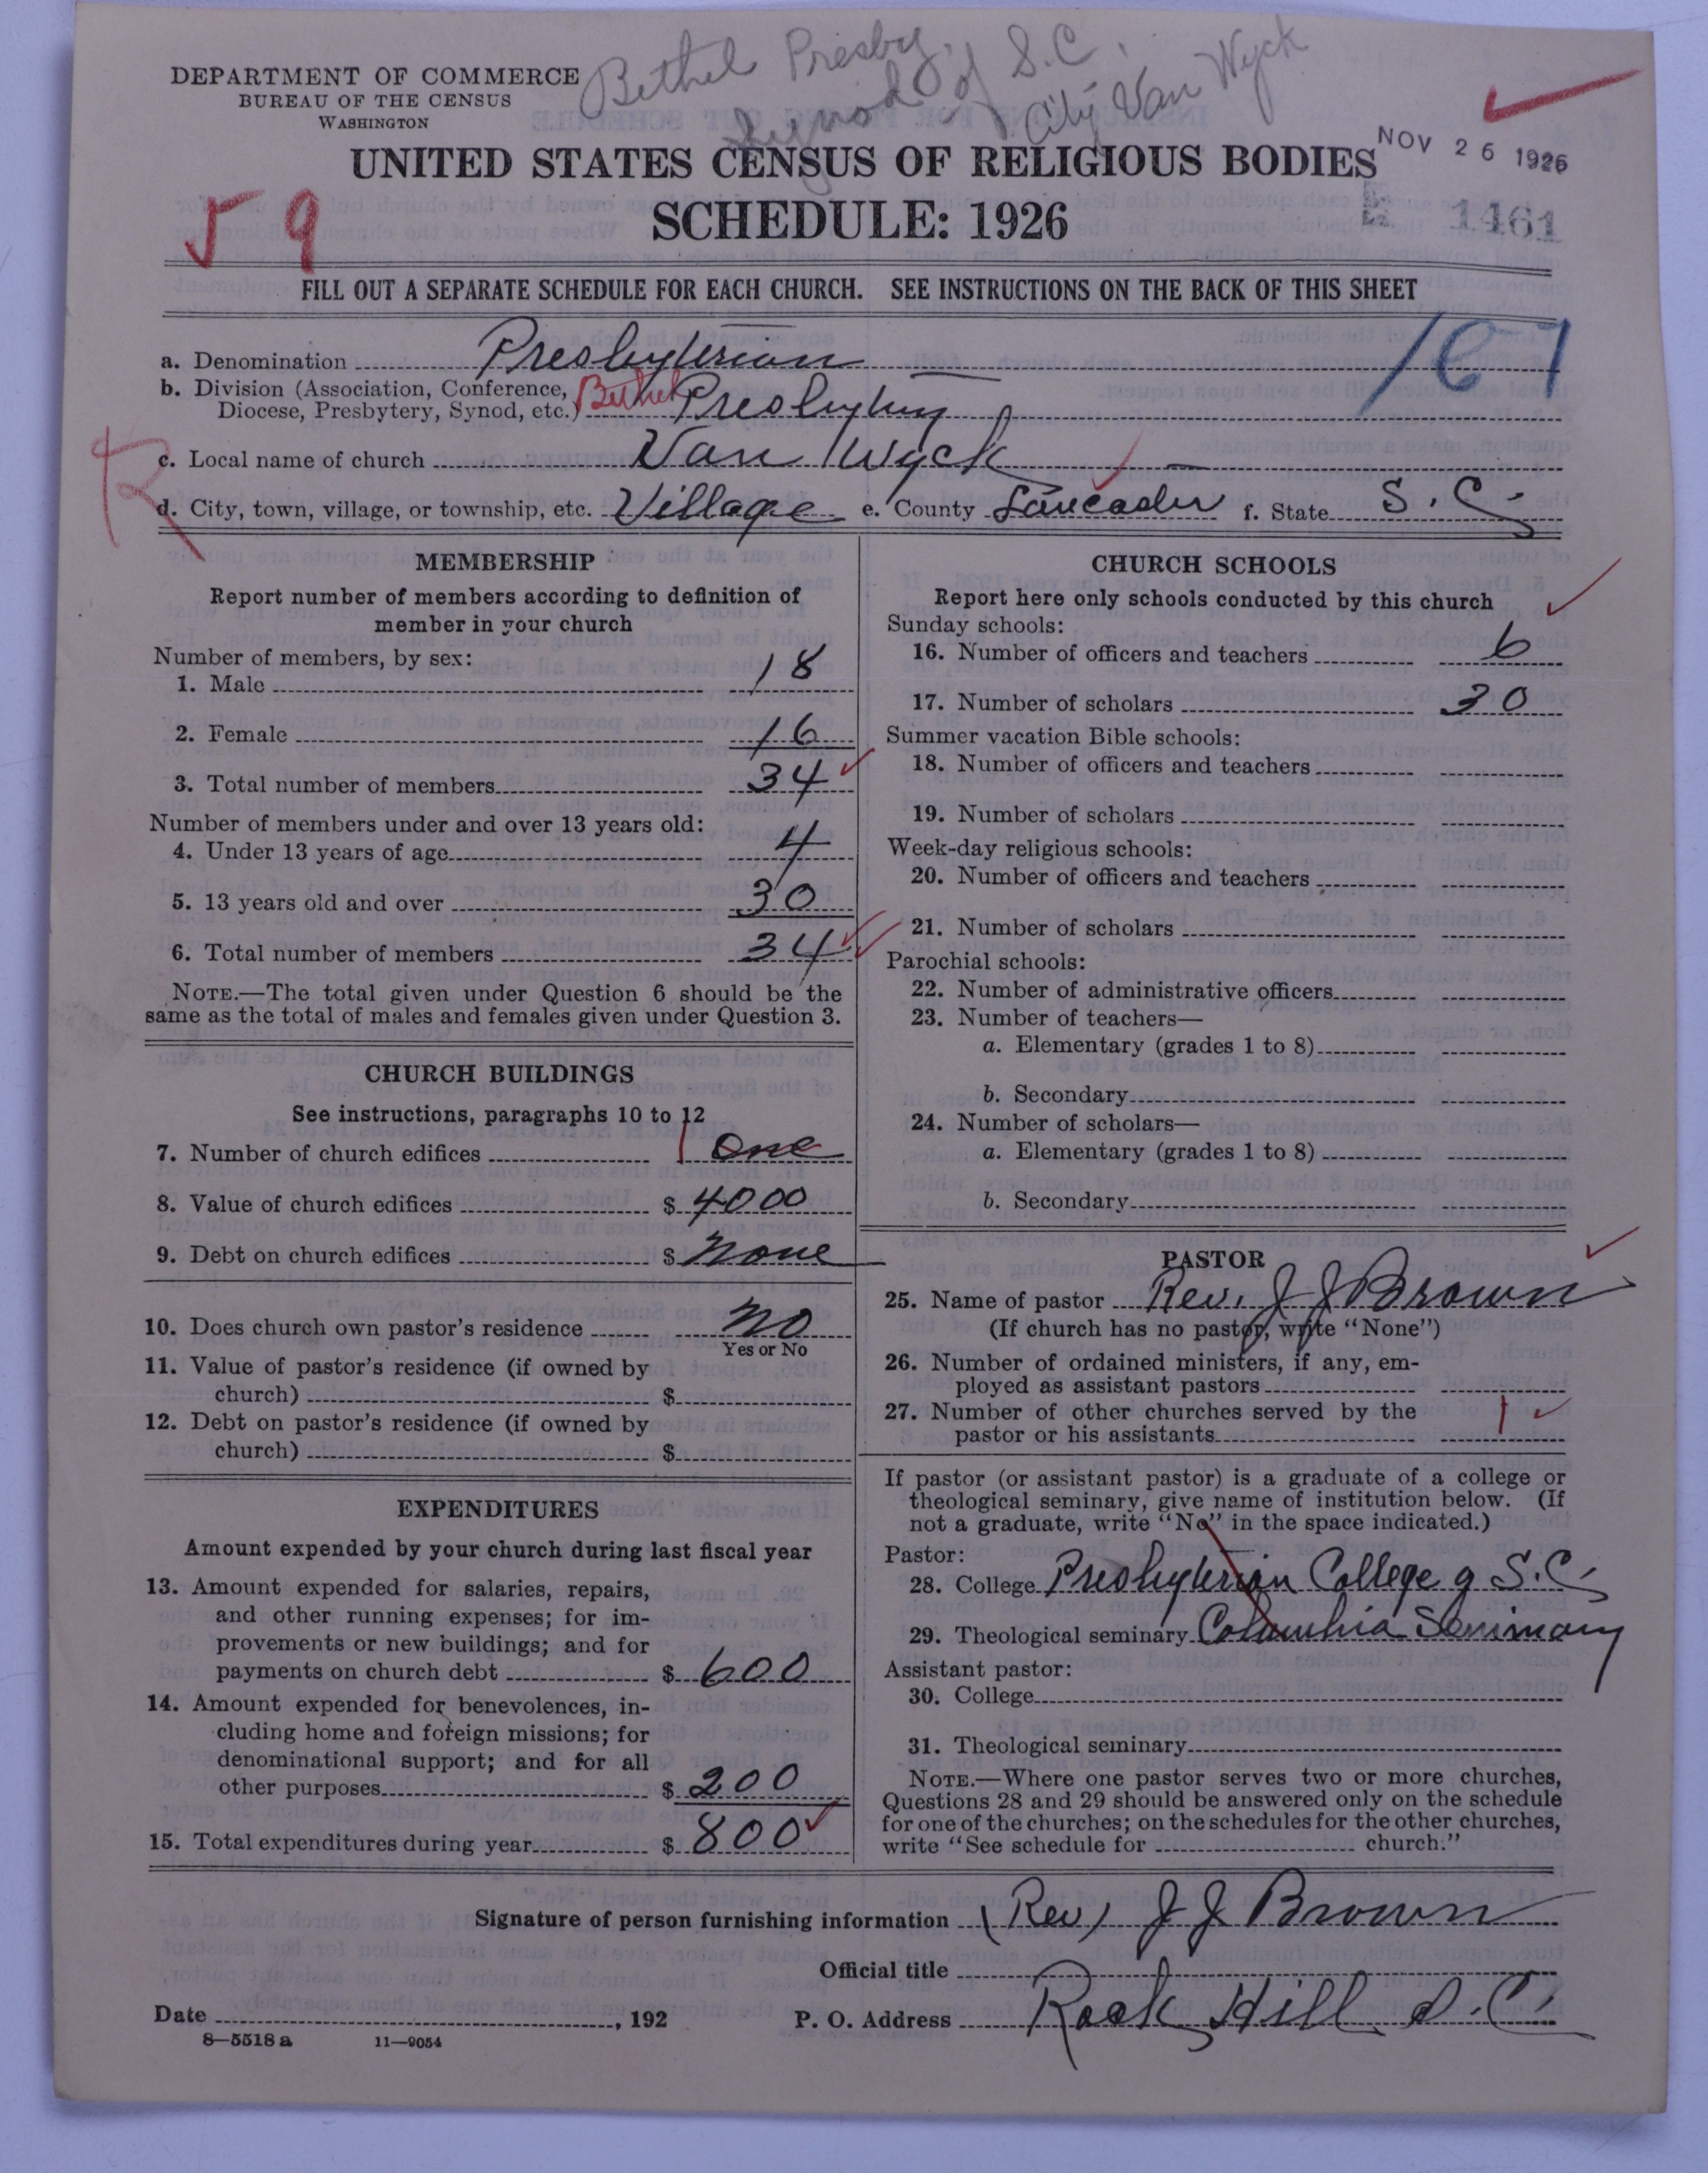 Bethel Presby.
Synod of S.C.
City Van Wyck
DEPARTMENT OF COMMERCE
BUREAU OF THE CENSUS
WASHINGTON
NOV 26 1926
UNITED STATES CENSUS OF RELIGIOUS BODIES
SCHEDULE: 1926
1461
59
FILL OUT A SEPARATE SCHEDULE FOR EACH CHURCH. SEE INSTRUCTIONS ON THE BACK OF THIS SHEET
a. Denomination Presbyterian
b. Division (Association, Conference,
Diocese, Presbytery, Synod, etc.) Bethel Presbytery
c. Local name of church Van Wyck
R
d. City, town, village, or township, etc. Village e. County Lancaster f. State S. C.
MEMBERSHIP
Report number of members according to definition of
member in your church
Number of members, by sex:
1. Male 18
2. Female 16
3. Total number of members 34
Number of members under and over 13 years old:
4. Under 13 years of age 4
5. 13 years old and over 30
6. Total number of members 34
NOTE.—The total given under Question 6 should be the
same as the total of males and females given under Question 3.
CHURCH BUILDINGS
See instructions, paragraphs 10 to 12
7. Number of church edifices 1 One
8. Value of church edifices $ 4000
9. Debt on church edifices $ None
10. Does church own pastor's residence No
Yes or No
11. Value of pastor's residence (if owned by
church) $
12. Debt on pastor's residence (if owned by
church) $
EXPENDITURES
Amount expended by your church during last fiscal year
13. Amount expended for salaries, repairs,
and other running expenses; for im-
provements or new buildings; and for
payments on church debt $ 600
14. Amount expended for benevolences, in-
cluding home and foreign missions; for
denominational support; and for all
other purposes $ 200
15. Total expenditures during year $ 800
CHURCH SCHOOLS
Report here only schools conducted by this church
Sunday schools:
16. Number of officers and teachers 6
17. Number of scholars 30
Summer vacation Bible schools:
18. Number of officers and teachers
19. Number of scholars
Week-day religious schools:
20. Number of officers and teachers
21. Number of scholars
Parochial schools:
22. Number of administrative officers
23. Number of teachers—
a. Elementary (grades 1 to 8)
b. Secondary
24. Number of scholars—
a. Elementary (grades 1 to 8)
b. Secondary
PASTOR
25. Name of pastor Rev. J J Brown
(If church has no pastor, write "None")
26. Number of ordained ministers, if any, em-
ployed as assistant pastors
27. Number of other churches served by the
pastor or his assistants 1
If pastor (or assistant pastor) is a graduate of a college or
theological seminary, give name of institution below. (If
not a graduate, write "No" in the space indicated.)
Pastor:
28. College Presbyterian College of S.C.
29. Theological seminary Columbia Seminary
Assistant pastor:
30. College
31. Theological seminary
NOTE.—Where one pastor serves two or more churches,
Questions 28 and 29 should be answered only on the schedule
for one of the churches; on the schedules for the other churches,
write "See schedule for church."
Signature of person furnishing information (Rev) J J Brown
Official title
Date , 192 P. O. Address Rock Hill S. C.
8—5518 a 11—9054